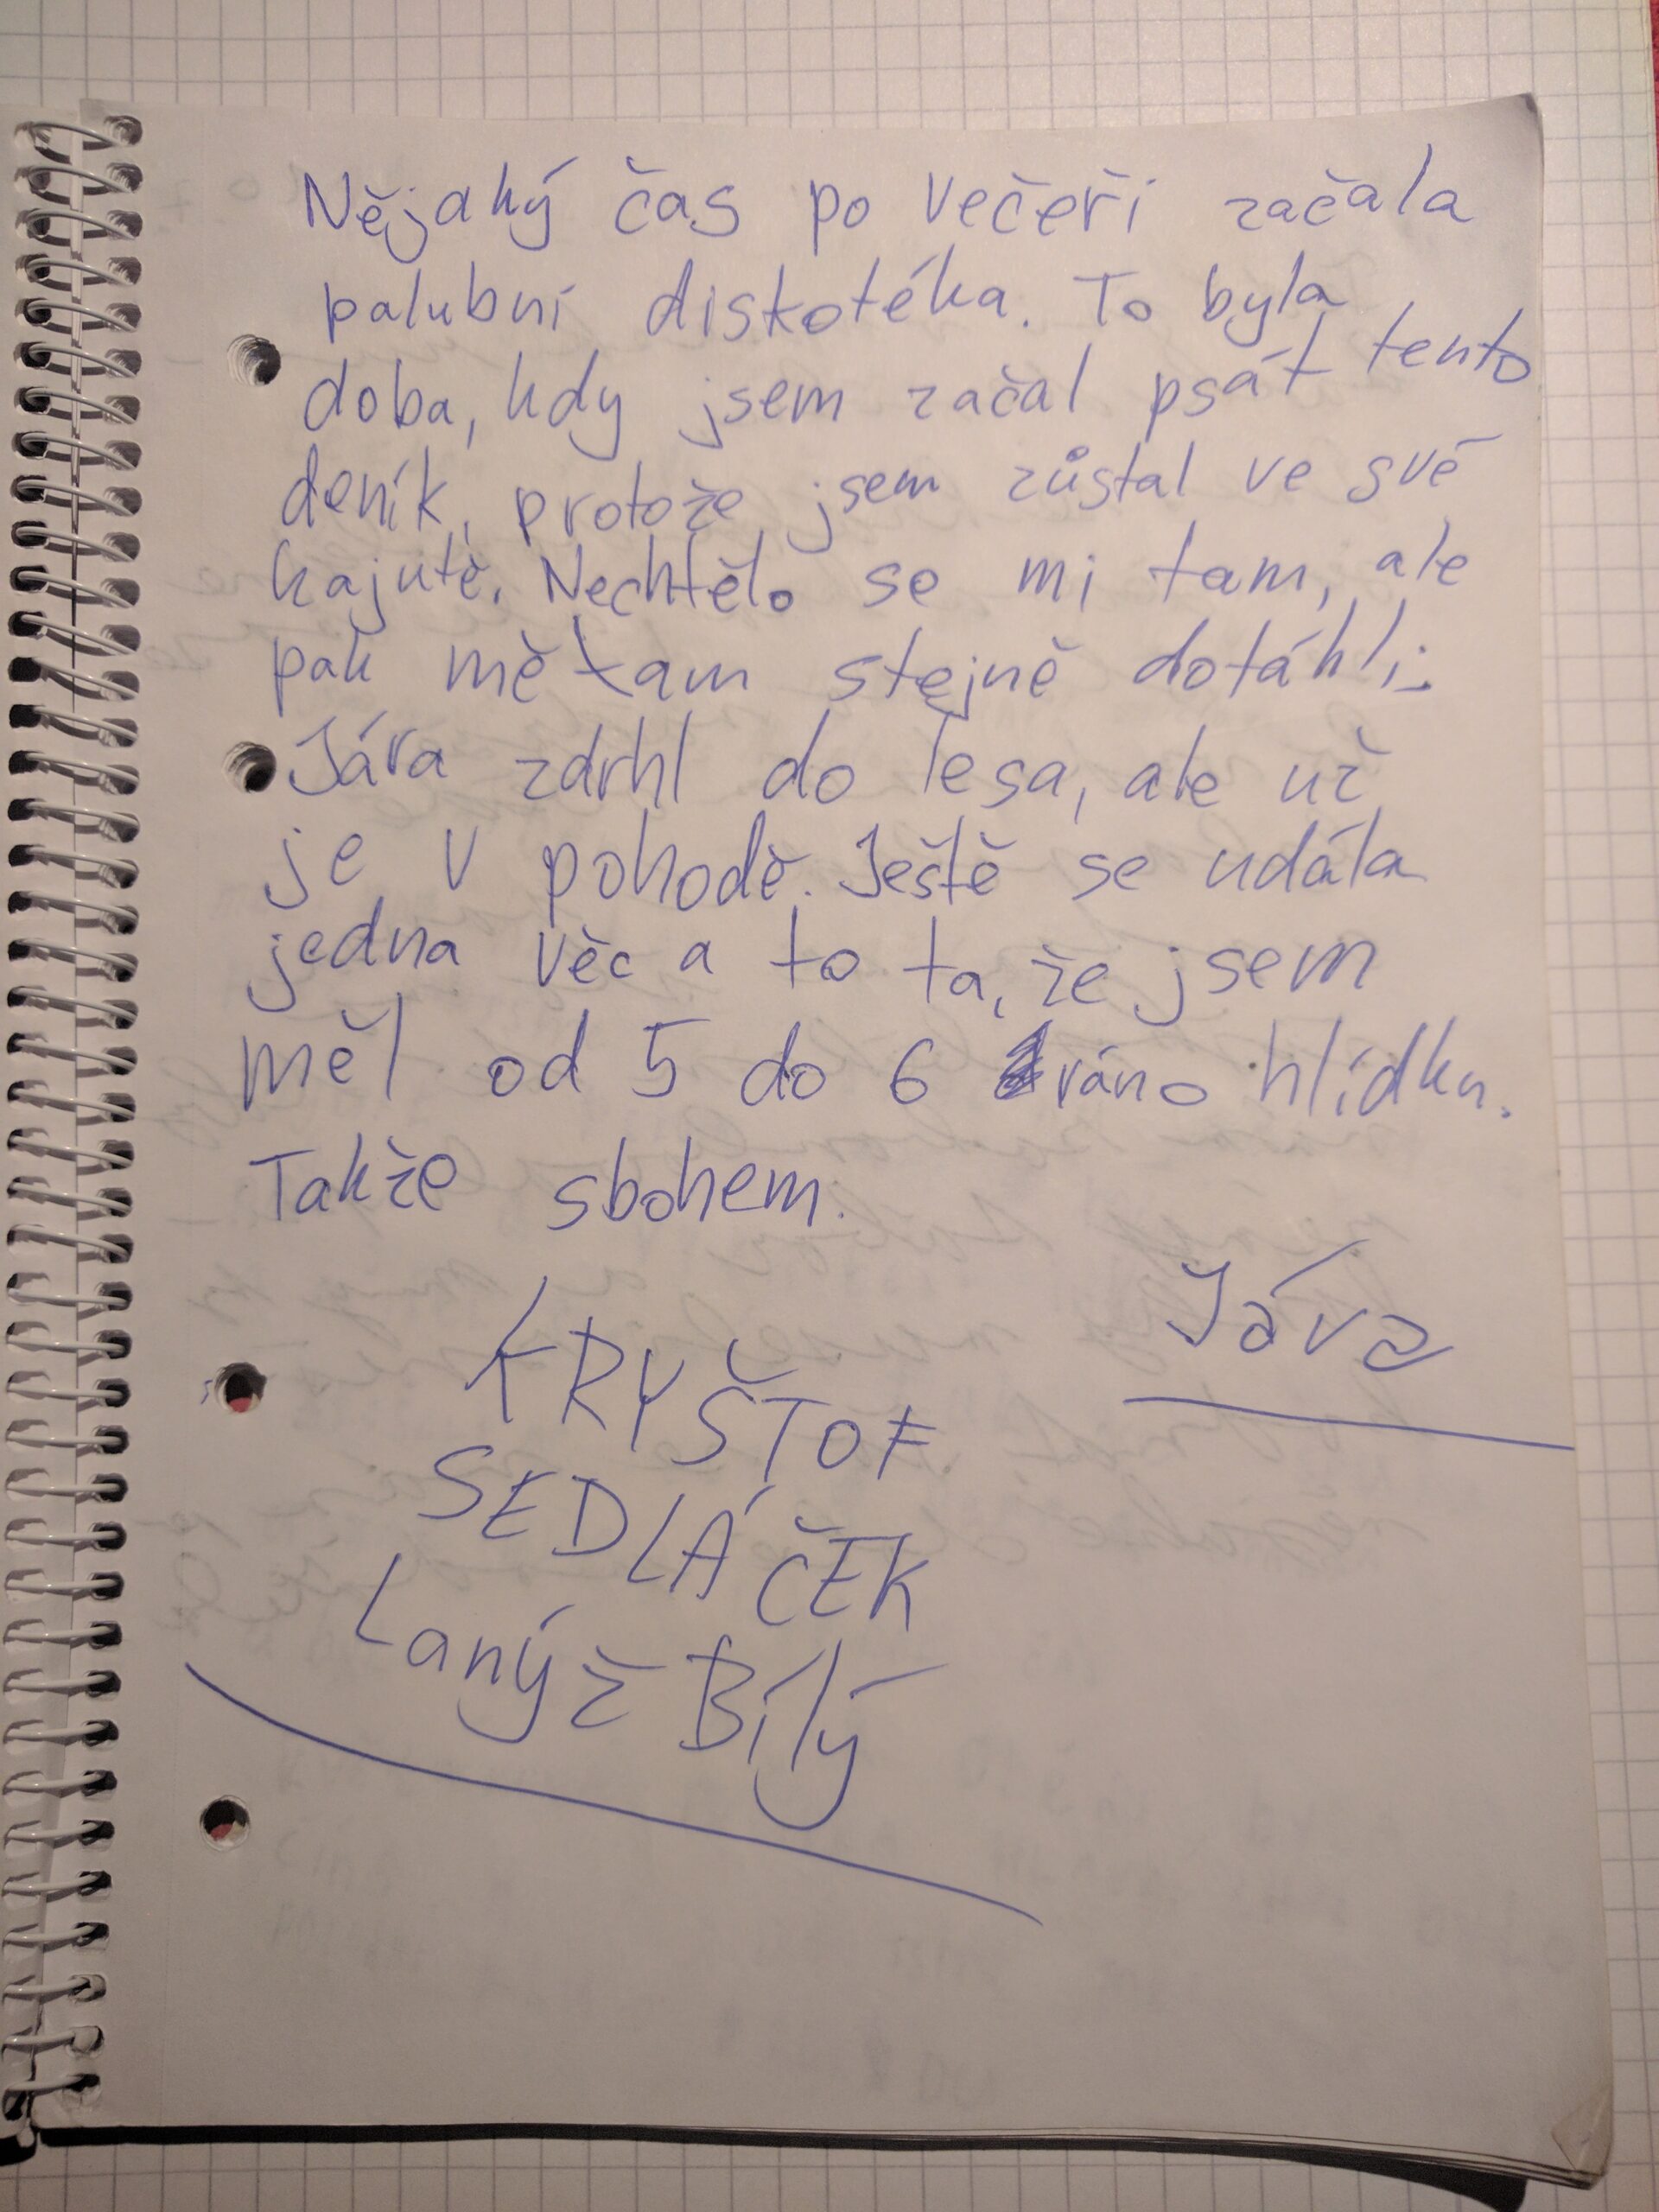 Nějaký čas po večeři začala
palubní diskotéka. To byla
doba, kdy jsem začal psát tento
deník, protože jsem zůstal ve své
kajutě. Nechtělo se mi tam, ale
pak mě tam stejně dotáhli.
Jára zdrhl do lesa, ale už
je v pohodě. Ještě se udála
jedna věc a to ta, že jsem
měl od 5 do 6 ráno hlídku.
Takže sbohem.
Jáva
KRYŠTOF
SEDLÁČEK
Lanýž Bílý